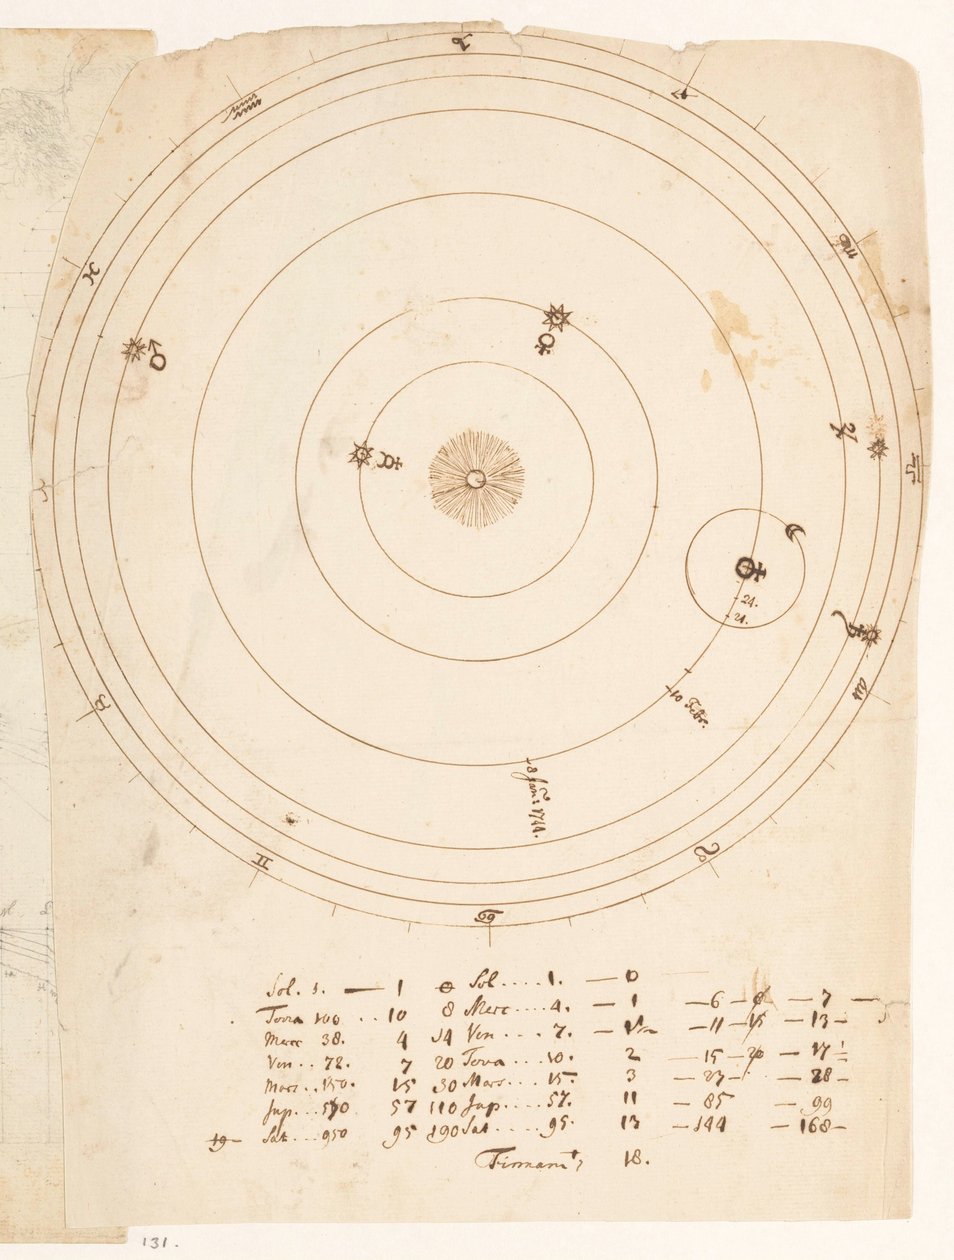 ♑
♒ ♐
♓ ♏
♂ ♀
☿ ♃ ♎
♈
24.
21.
♄
♉ 10 Febr. ♍
8 Jan: 1744.
♊ ♌
♋
Sol. 1. — 1 0 Sol.....1. — 0
Terra 100 .. 10 8 Merc....4. — 1 — 6 — 8 — 7 —
Merc 38. 4 14 Ven....7. — — 11 — 15 — 13 —
Ven.. 72. 7 20 Terra...10. 2 — 15 — 20 — 17 ½
Mars.. 150. 15 30 Mars....15. 3 — 27 — 28 —
Jup... 57 110 Jup.....57. 11 — 85 — 99
19 — Sat...950 95 190 Sat.....95. 13 — 144 — 168 —
18.
131.